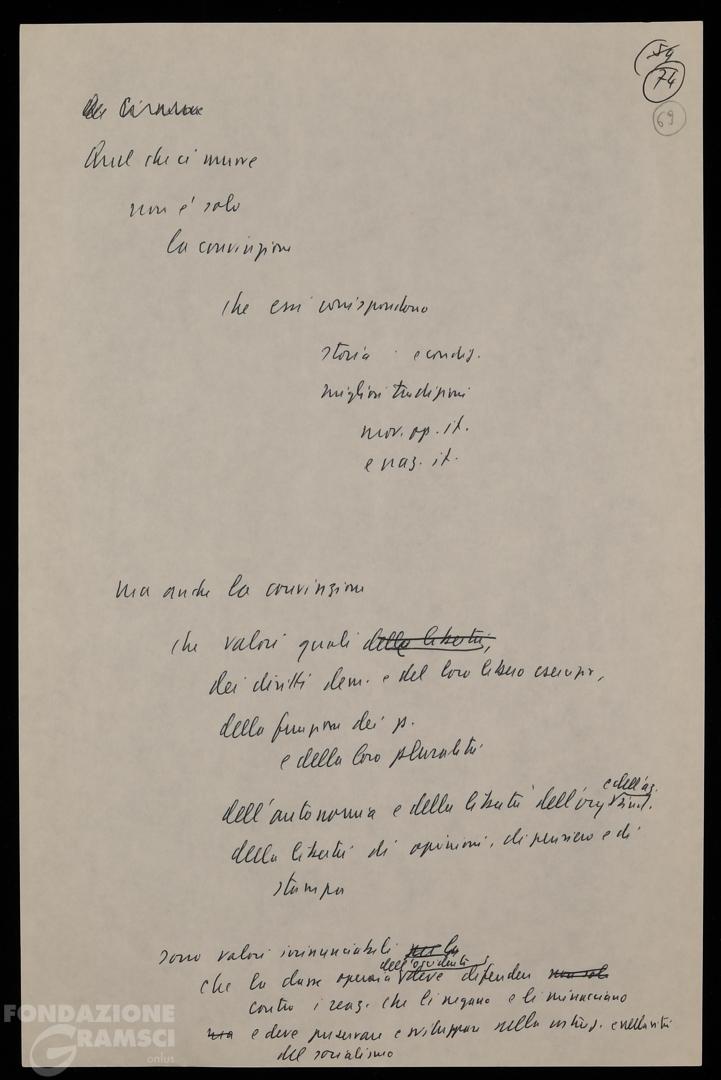 59
74
69
Quel che ci muove
non é solo
la convinzione
che essi corrispondono
storia e condiz.
migliori tradizioni
mov. op. it.
e naz. it.
ma anche la convinzione
che valori quali della libertà,
dei diritti dem. e del loro libero esercizio,
della funzione dei p.
e della loro pluralità
e dell'az.
dell'autonomia e della libertà dell'org sind.
della libertà di opinioni, di pensiero e di
stampa
sono valori irrinunciabili per la
dell'occidente
che la classe operaia deve difendere non solo
contro i reaz. che li negano e li minacciano
ma e deve preservare e sviluppare nella costruz. e nella vita
del socialismo
FONDAZIONE
GRAMSCI
onlus